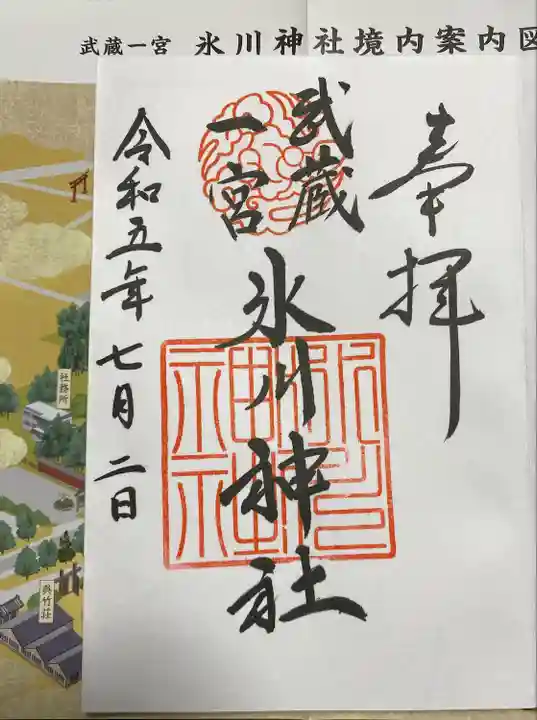 武蔵一宮 氷川神社境内案内図
奉拝
武蔵
一宮
氷川神社
令和五年七月二日
氷川神社
社務所
呉竹荘